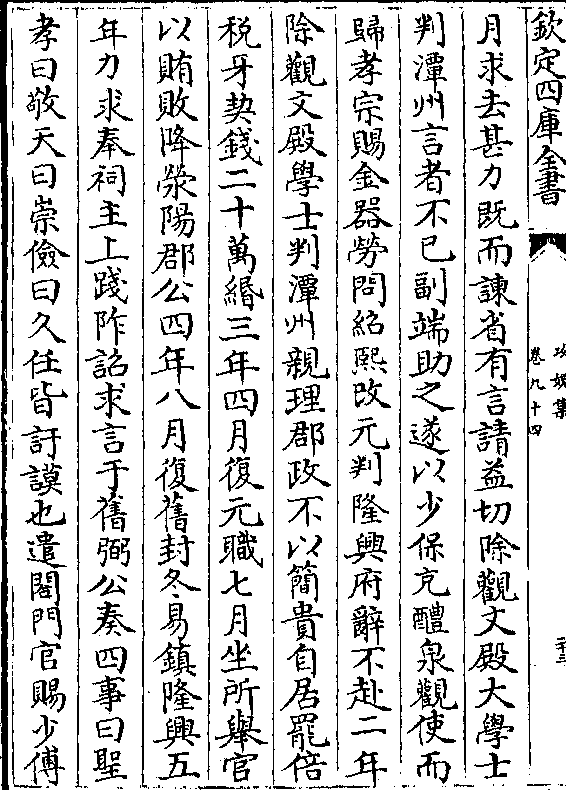 欽定四庫全書
攻媿集
卷九十四
月求去甚力既而諫省有言請益切除觀文殿大學士
判潭州言者不已副端助之遂以少保充醴泉觀使而
歸孝宗賜金器勞問紹熙改元判隆興府辭不赴二年
除觀文殿學士判潭州親理郡政不以簡貴自居罷倍
稅牙契錢二十萬緡三年四月復元職七月坐所舉官
以賄敗降滎陽郡公四年八月復舊封冬易鎮隆興五
年力求奉祠主上踐阼詔求言于舊弼公奏四事曰聖
孝曰敬天曰崇儉曰久任皆訏謨也遣閤門官賜少傅